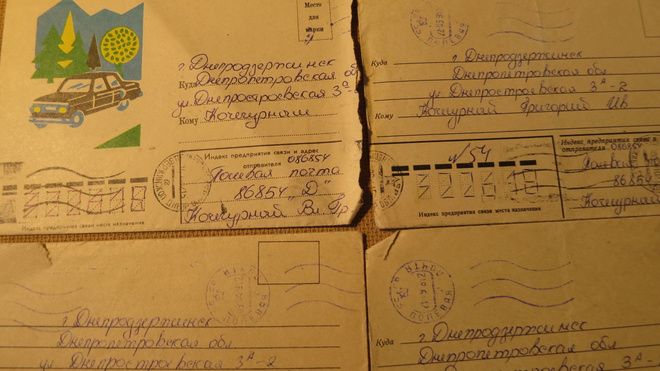 Место
для
марки
г. Днепродзержинск
Куда Днепропетровская обл
ул. Днепростроевская 3А-2
Кому Кочкурным
Индекс предприятия связи и адрес
отправителя 086854
Полевая почта
86854 „Д"
Кочкурный Вл. Гр
Индекс предприятия связи места назначения
г. Днепродзержинск
Куда Днепропетровская обл
ул Днепростроевская 3А-2
Кому Кочкурный Григорий Ив
Индекс предприятия связи и
отправителя 086854
№54
Полевая
86854
322618
Кочкурный
Индекс предприятия связи места назначения
ПОЧТА
ПОЛЕВАЯ
г. Днепродзержинск
Днепропетровская обл
ул Днепростроевская 3А-2
ПОЧТА
ПОЛЕВАЯ
г. Днепродзержинск
Куда Днепропетровская обл
ул. Днепростроевская 3А-